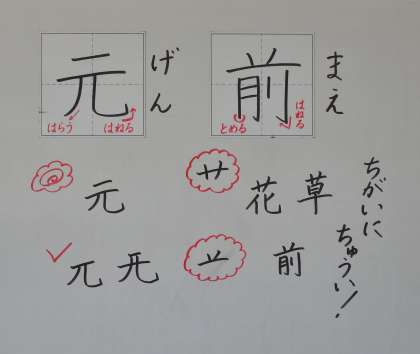 元 げん
はらう はねる
前 まえ
とめる はねる
元
兀 旡
艹 花 草
䒑 前
ちがいに
ちゅうい!